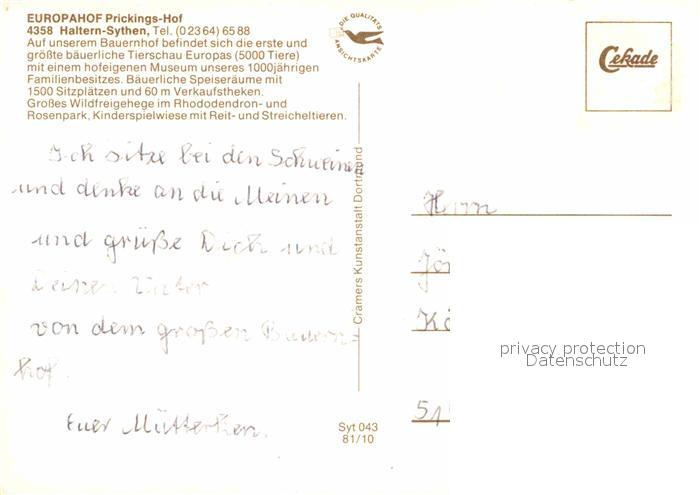 EUROPAHOF Prickings-Hof
4358 Haltern-Sythen, Tel. (0 23 64) 65 88
Auf unserem Bauernhof befindet sich die erste und
größte bäuerliche Tierschau Europas (5000 Tiere)
mit einem hofeigenen Museum unseres 1000jährigen
Familienbesitzes. Bäuerliche Speiseräume mit
1500 Sitzplätzen und 60 m Verkaufstheken.
Großes Wildfreigehege im Rhododendron- und
Rosenpark, Kinderspielwiese mit Reit- und Streicheltieren.
DIE QUALITÄTS
ANSICHTSKARTE
Cekade
Ich sitze bei den Schweinen
und denke an die Meinen
und grüße Dich und
Deinen Vater
von dem großen Bauern=
hof.
Euer Mütterken.
Cramers Kunstanstalt Dortmund
Syt 043
81/10
Herrn
Jö
Kö
51
privacy protection
Datenschutz